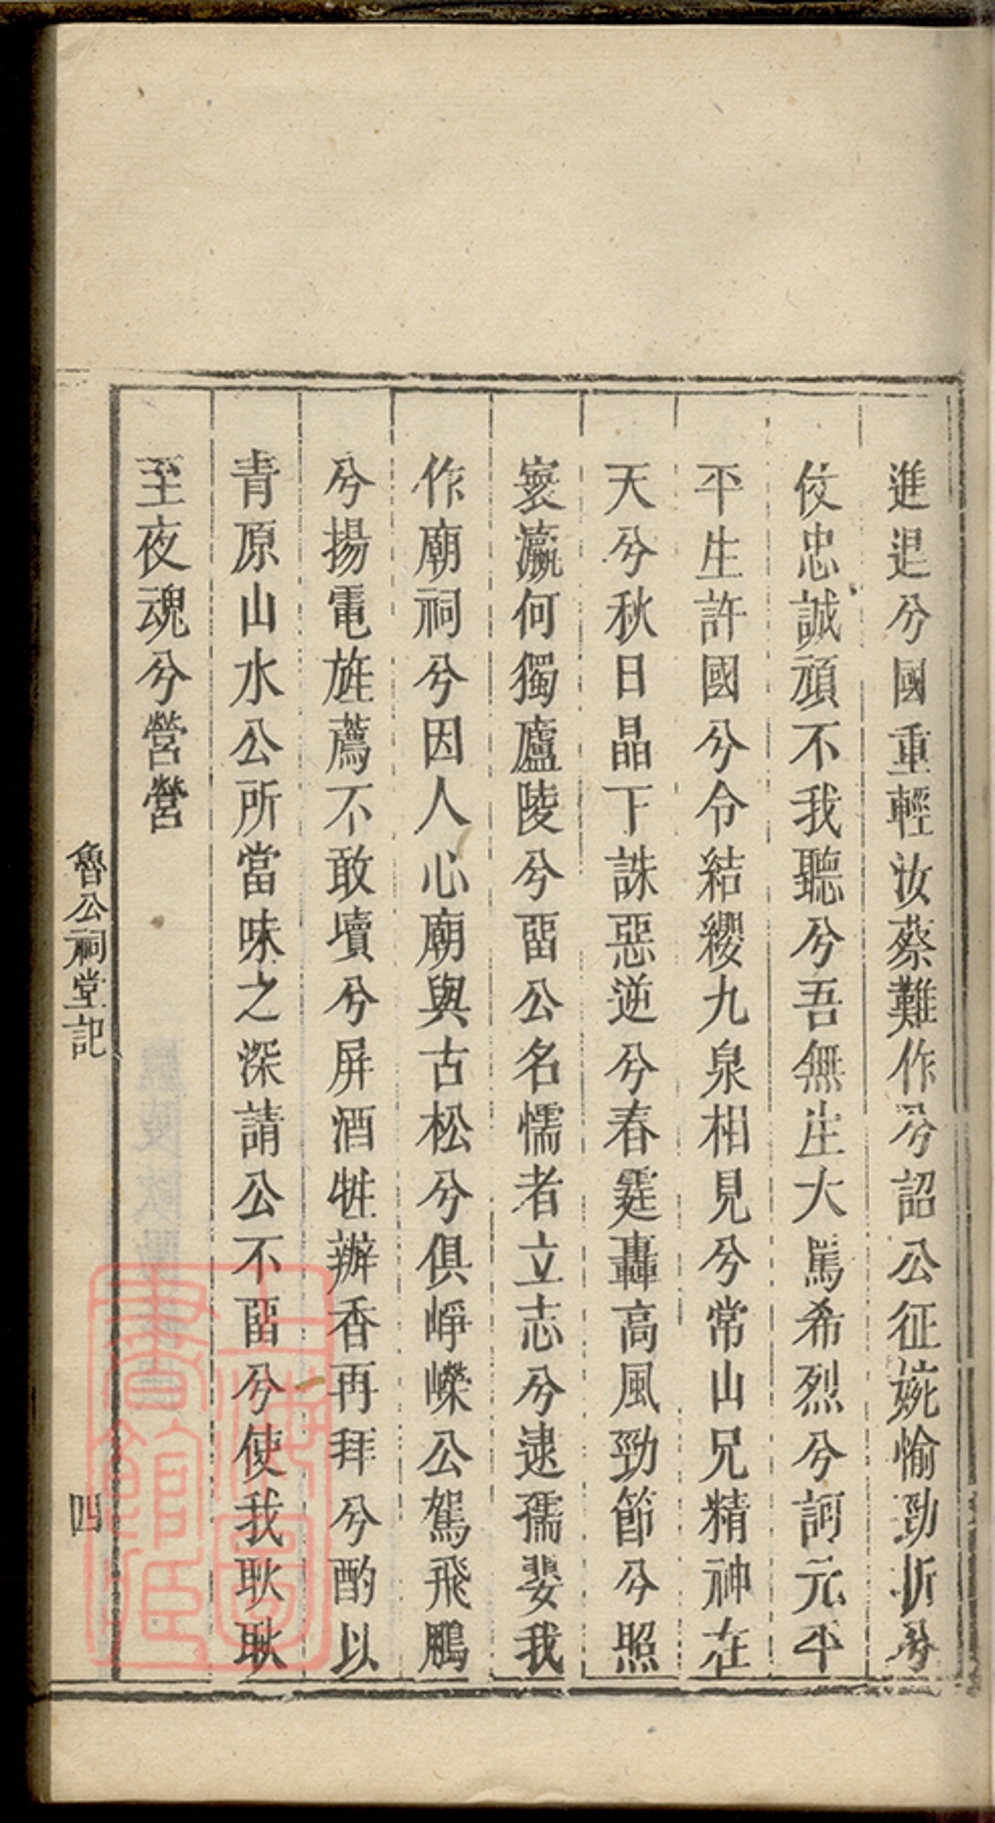 進退兮國重輕汝蔡難作兮詔公征婉愉勁折兮
佼忠誠頑不我聽兮吾無生大罵希烈兮訶元平
平生許國兮令結纓九泉相見兮常山兄精神在
天兮秋日晶下誅惡逆兮春霆轟高風勁節兮照
寰瀛何獨廬陵兮畱公名懦者立志兮逮孺嬰我
作廟祠兮因人心廟與古松兮俱崢嶸公駕飛鵬
兮揚電旌薦不敢瀆兮屏酒牲瓣香再拜兮酌以
青原山水公所當味之深請公不畱兮使我耿耿
至夜魂兮營營
魯公祠堂記
四
上海圖書館藏